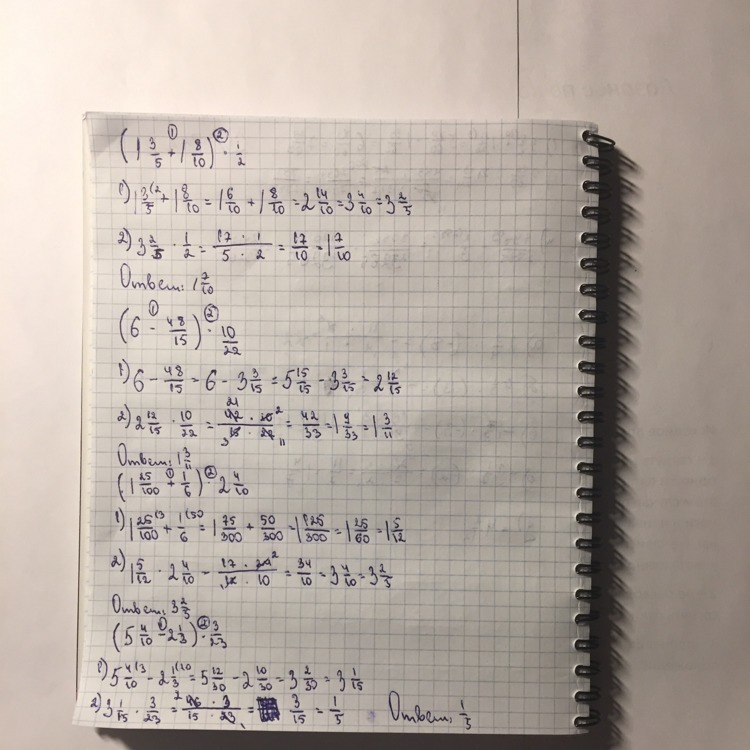 (1 3/5 + 1 8/10) · 1/2
1) 1 3/5 + 1 8/10 = 1 6/10 + 1 8/10 = 2 14/10 = 3 4/10 = 3 2/5
2) 3 2/5 · 1/2 = 17 · 1 / 5 · 2 = 17/10 = 1 7/10
Ответ: 1 7/10
(6 - 48/15) · 10/22
1) 6 - 48/15 = 6 - 3 3/15 = 5 15/15 - 3 3/15 = 2 12/15
2) 2 12/15 · 10/22 = 42 · 10 / 15 · 22 = 42/33 = 1 9/33 = 1 3/11
Ответ: 1 3/11
(1 25/100 + 1/6) · 2 4/10
1) 1 25/100 + 1/6 = 1 75/300 + 50/300 = 1 125/300 = 1 25/60 = 1 5/12
2) 1 5/12 · 2 4/10 = 17 · 24 / 12 · 10 = 34/10 = 3 4/10 = 3 2/5
Ответ: 3 2/5
(5 4/10 - 2 1/3) · 3/23
1) 5 4/10 - 2 1/3 = 5 12/30 - 2 10/30 = 3 2/30 = 3 1/15
2) 3 1/15 · 3/23 = 46 · 3 / 15 · 23 = 3/15 = 1/5 Ответ: 1/5